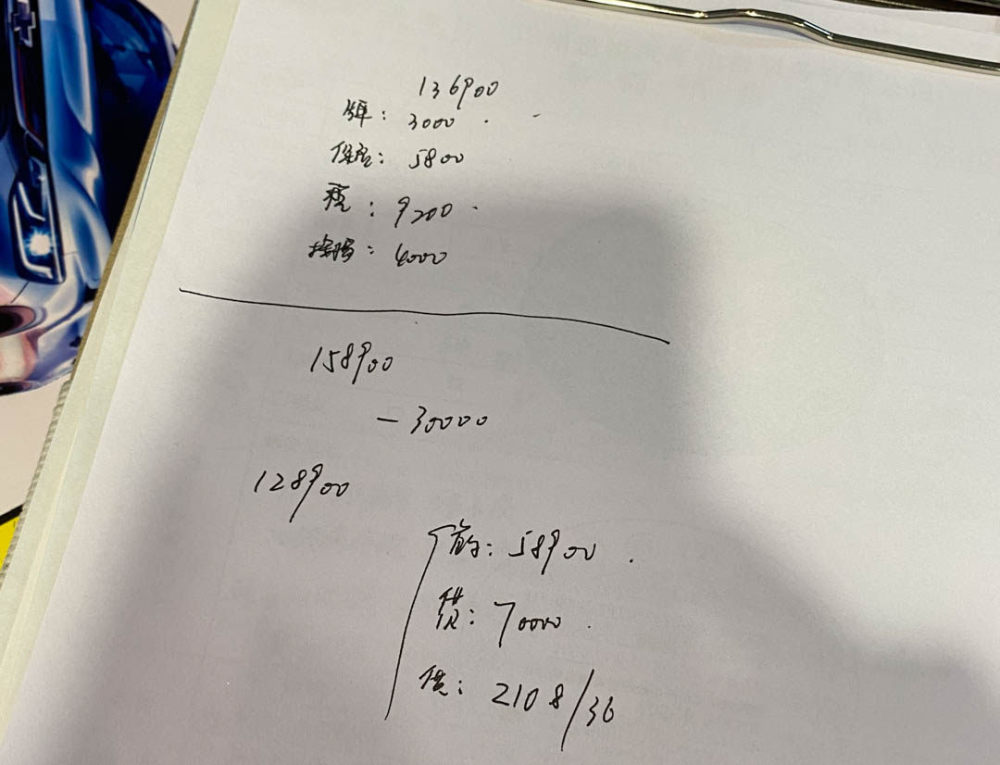 136900
牌: 3000
保险: 5800
税: 9200
按揭: 4000
158900
- 30000
128900
首: 58900
贷: 70000
供: 2108/36